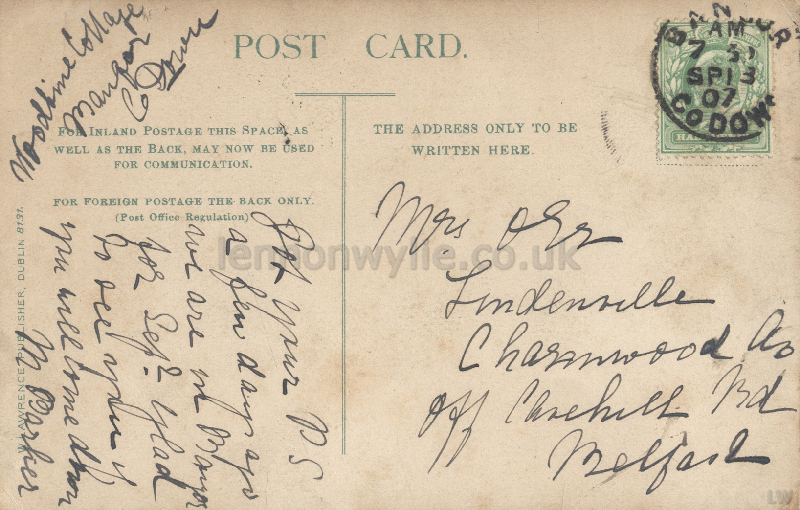 Woodbine Cottage
Bangor
Down
POST CARD.
FOR INLAND POSTAGE THIS SPACE, AS
WELL AS THE BACK, MAY NOW BE USED
FOR COMMUNICATION.
FOR FOREIGN POSTAGE THE BACK ONLY.
(Post Office Regulation)
THE ADDRESS ONLY TO BE
WRITTEN HERE.
BANGOR
AM
7
SP 13
07
CO DOWN
Got your P S
a few days ago
we are in Bangor
for Sept. Glad
to see you if
you will come down
M Barker
Mrs Orr
Lindenville
Charnwood Av
off Cavehill Rd
Belfast
LAWRENCE, PUBLISHER, DUBLIN 8191.
lennonwylie.co.uk
LW